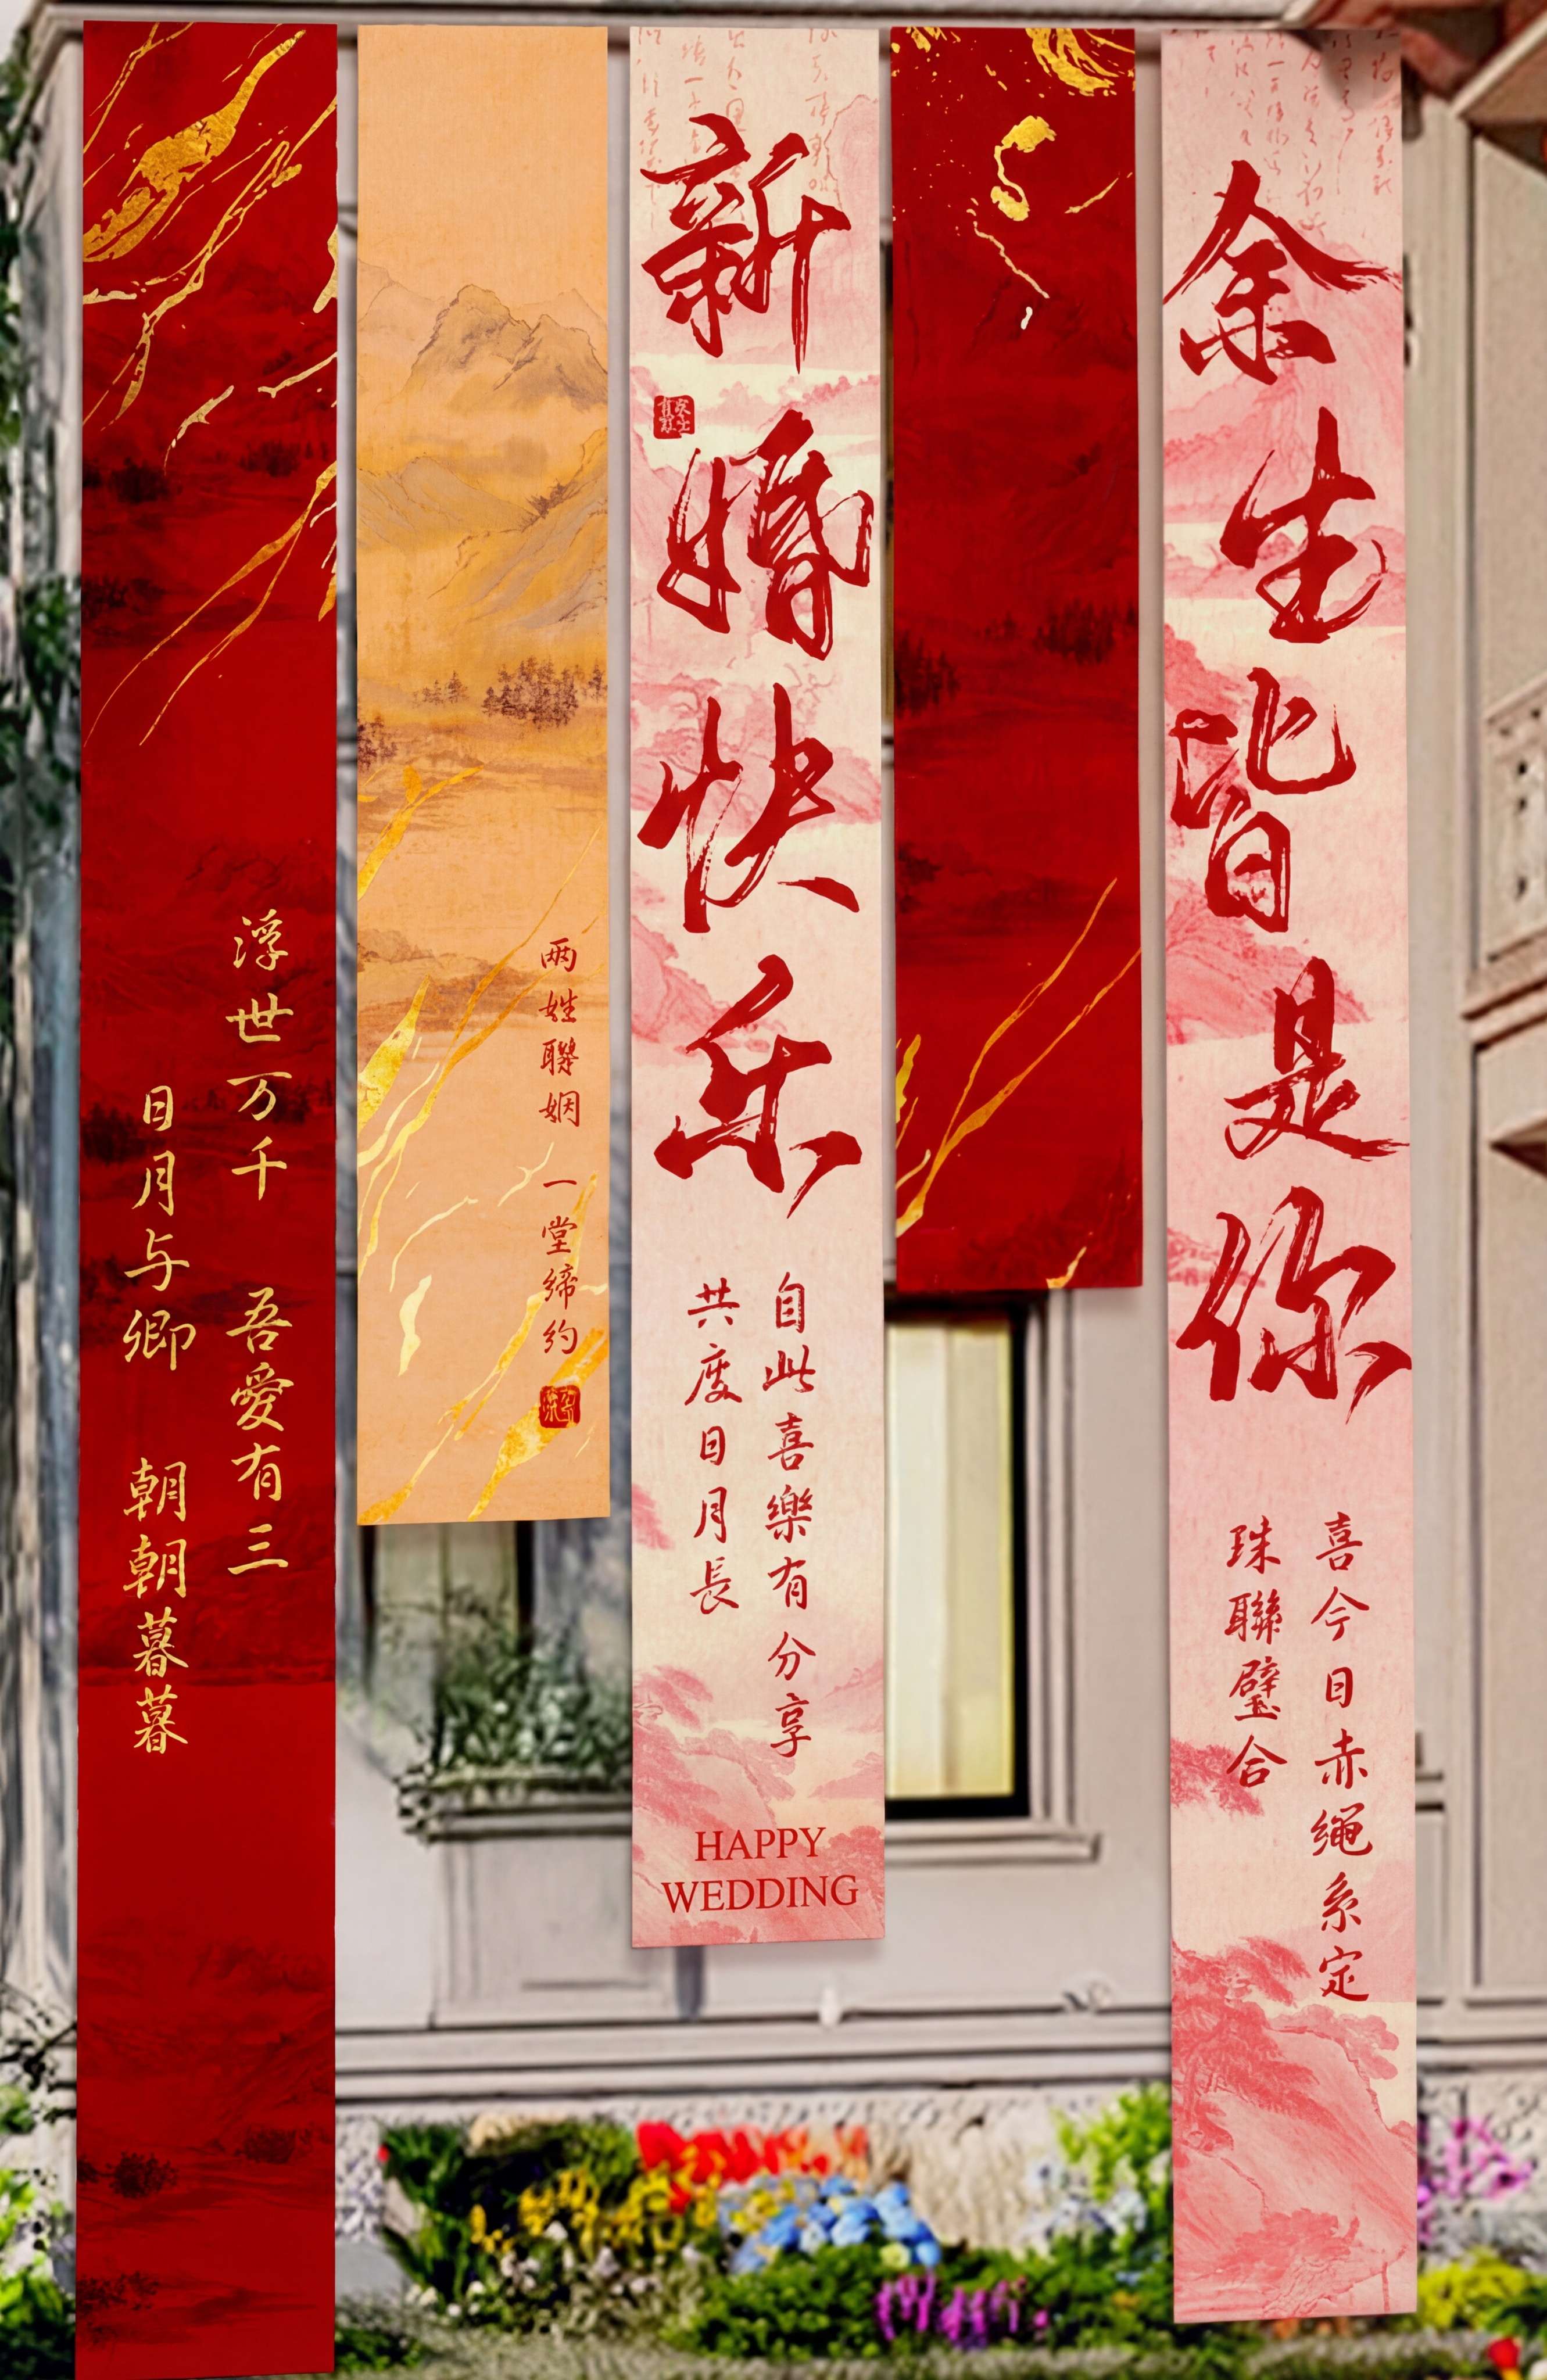 余生皆是你
喜今日赤绳系定
珠聯璧合
新婚快乐
自此喜樂有分享
共度日月長
HAPPY
WEDDING
兩姓聯姻 一堂締约
浮世万千 吾愛有三
日月与卿 朝朝暮暮